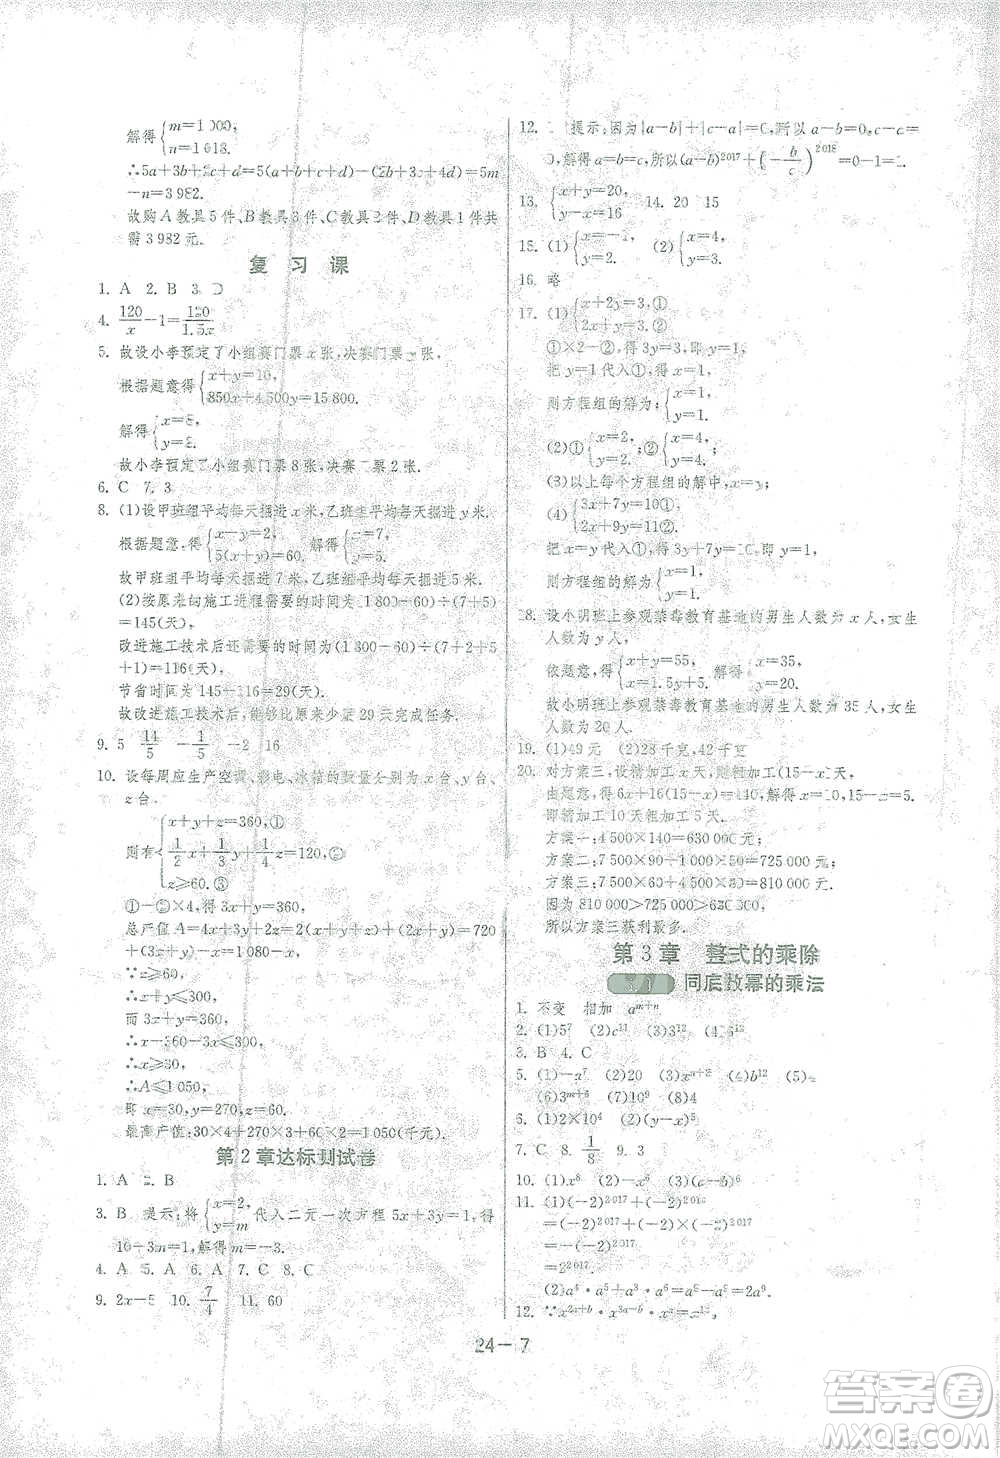 解得{m=1 000,
n=1 018.
∴5a+3b+2c+d=5(a+b+c+d)-(2b+3c+4d)=5m
-n=3 982.
故购 A 教具 5 件、B 教具 3 件、C 教具 2 件、D 教具 1 件共
需 3 982 元.
复 习 课
1. A 2. B 3. D
4. 120/x-1=120/1.5x
5. 故设小李预定了小组赛门票 x 张,决赛门票 y 张,
根据题意得{x+y=10,
850x+4 500y=15 800.
解得{x=8,
y=2.
故小李预定了小组赛门票 8 张,决赛门票 2 张.
6. C 7. 3
8. (1)设甲班组平均每天掘进 x 米,乙班组平均每天掘进 y 米.
根据题意,得{x-y=2,
5(x+y)=60. 解得{x=7,
y=5.
故甲班组平均每天掘进 7 米,乙班组平均每天掘进 5 米.
(2)按原来的施工进程需要的时间为(1 800-60)÷(7+5)
=145(天),
改进施工技术后还需要的时间为(1 800-60)÷(7+2+5
+1)=116(天),
节省时间为 145-116=29(天).
故改进施工技术后,能够比原来少用 29 天完成任务.
9. 5 14/5 -1/5 -2 16
10. 设每周应生产空调、彩电、冰箱的数量分别为 x 台、y 台、
z 台.
则有{x+y+z=360,①
1/2x+1/3y+1/4z=120,②
z≥60.
①-②×4,得 3x+y=360,
总产值 A=4x+3y+2z=2(x+y+z)+(2x+y)=720
+(3x+y)-x=1 080-x,
∵z≥60,
∴x+y≤300,
而 3x+y=360,
∴x+360-3x≤300,
∴x≥30,
∴A≤1 050,
即 x=30,y=270,z=60.
最高产值:30×4+270×3+60×2=1 050(千元).
第 2 章达标测试卷
1. A 2. B
3. B 提示:将{x=2,
y=m 代入二元一次方程 5x+3y=1,得
10+3m=1,解得 m=-3.
4. A 5. A 6. A 7. C 8. C
9. 2x-5 10. 7/4 11. 60
12. 提示:因为|a-b|+|c-a|=0,所以 a-b=0,c-a=
0,解得 a=b=c,所以(a-b)²⁰¹⁷+(-b/c)²⁰¹⁸
13. {x+y=20,
y-x=16 14. 20 15
15. (1){x=-1,
y=2. (2){x=4,
y=3.
16. 略
17. (1){x+2y=3,①
2x+y=3,②
①×2-②,得 3y=3,即 y=1.
把 y=1 代入①,得 x=1.
则方程组的解为{x=1,
y=1.
(2)①{x=2,
y=2;②{x=4,
y=4.
(3)以上每个方程组的解中,x=y.
(4){3x+7y=10①,
2x+9y=11②.
把 x=y 代入①,得 3y+7y=10,即 y=1,
则方程组的解为{x=1,
y=1.
18. 设小明班上参观禁毒教育基地的男生人数为 x 人,女生
人数为 y 人.
依题意,得{x+y=55,
x=1.5y+5. 解得{x=35,
y=20.
故小明班上参观禁毒教育基地的男生人数为 35 人,女生
人数为 20 人.
19. (1)49 元 (2)28 千克,42 千克
20. 对方案三,设精加工 x 天,则粗加工(15-x)天.
由题意,得 6x+16(15-x)=140,解得 x=10,15-x=5.
即精加工 10 天,粗加工 5 天.
方案一:4 500×140=630 000(元);
因为 810 000>725 000>630 000,
所以方案三获利最多.
第 3 章 整式的乘除
3.1 同底数幂的乘法
1. 不变 相加 aᵐ⁺ⁿ
3. B 4. C
7. C 8. 1/8 9. 3
11. (1)(-2)²⁰¹⁷+(-2)²⁰¹⁸
=(-2)²⁰¹⁷+(-2)²⁰¹⁷×(-2)
=-(-2)²⁰¹⁷
=2²⁰¹⁷.
24—7
答案卷
MXQE.COM